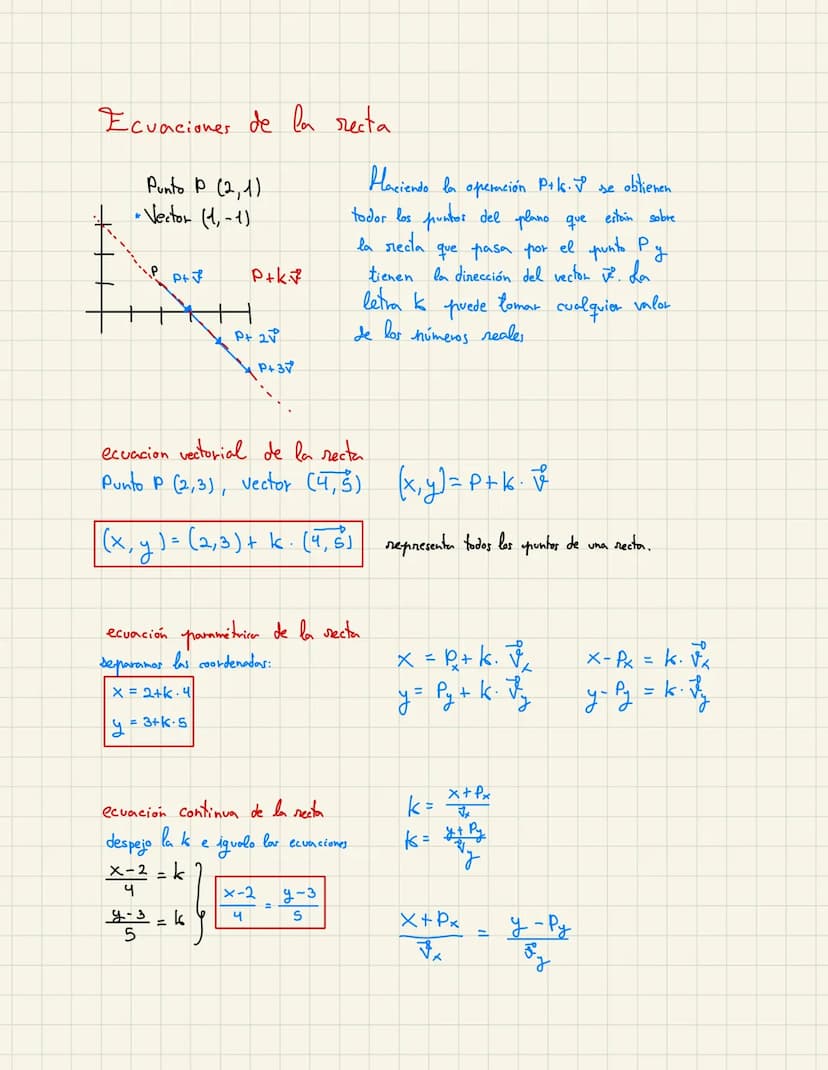 Ecuaciones de la recta
Punto P (2,1)
• Vector (1,-1)
P
P+v⃗
P+k.v⃗
P+ 2v⃗
P+3v⃗
Haciendo la operación P+k.v⃗ se obtienen
todos los puntos del plano que están sobre
la recta que pasa por el punto P y
tienen la dirección del vector v⃗. La
letra k puede tomar cualquier valor
de los números reales
ecuacion vectorial de la recta
Punto P (2,3), vector (4,5)
(x,y)= P+k. v⃗
(x,y)=(2,3)+ k. (4,5)
representa todos los puntos de una recta.
ecuación paramétrica de la recta
separamos las coordenadas:
x = 2+k.4
y = 3+k.5
x = Px+ k. v⃗x
y= Py+ k. v⃗y
x-Px = k. v⃗x
y-Py = k. v⃗y
ecuación continua de la recta
despejo la k e igualo las ecuaciones
x-2/4 = k
y-3/5 = k
x-2/4 = y-3/5
k= x+Px/v⃗x
k= y+Py/v⃗y
x+Px/v⃗x = y-Py/v⃗y